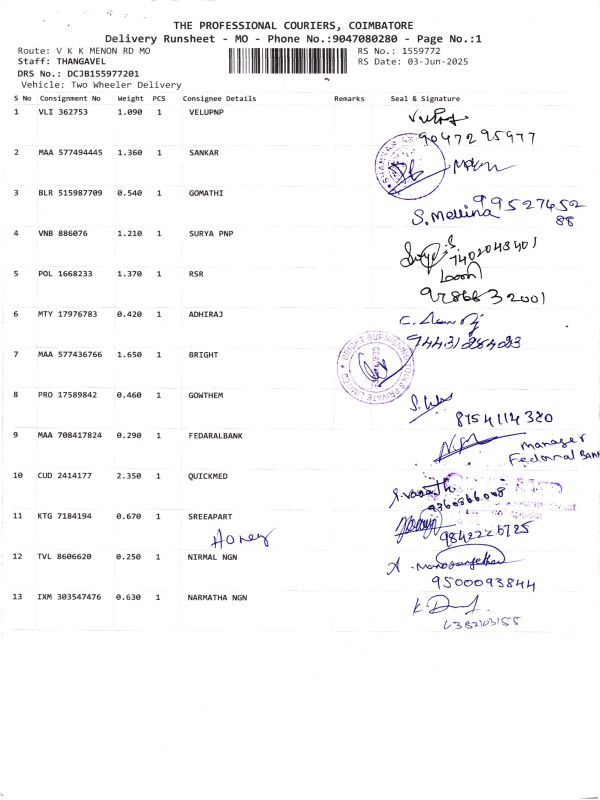 THE PROFESSIONAL COURIERS, COIMBATORE
Delivery Runsheet - MO - Phone No.:9047080280 - Page No.:1
Route: V K K MENON RD MO
RS No.: 1559772
Staff: THANGAVEL
RS Date: 03-Jun-2025
DRS No.: DCJB155977201
Vehicle: Two Wheeler Delivery
S No Consignment No Weight PCS Consignee Details Remarks Seal & Signature
1 VLI 362753 1.090 1 VELUPNP
9047295977
2 MAA 577494445 1.360 1 SANKAR
3 BLR 515987709 0.540 1 GOMATHI
S. Mellina 99527452
88
4 VNB 886076 1.210 1 SURYA PNP
7402048401
5 POL 1668233 1.370 1 RSR
9286632001
6 MTY 17976783 0.420 1 ADHIRAJ
7 MAA 577436766 1.650 1 BRIGHT
8 PRO 17589842 0.460 1 GOWTHEM
8754114320
9 MAA 708417824 0.290 1 FEDARALBANK
Manager
10 CUD 2414177 2.350 1 QUICKMED
11 KTG 7184194 0.670 1 SREEAPART
Honey
12 TVL 8606620 0.250 1 NIRMAL NGN
9500093844
13 IXM 303547476 0.630 1 NARMATHA NGN